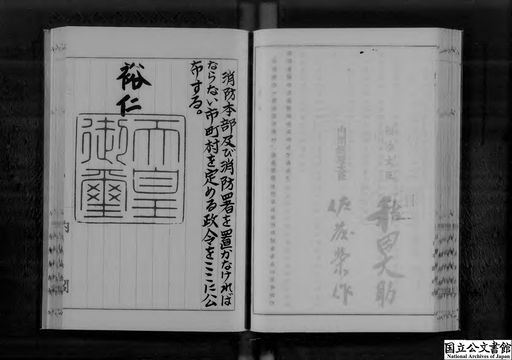 消防本部及び消防署を置かなければ
ならない市町村を定める政令をここに公
布する。
裕仁
天皇
御璽
内閣総理大臣
佐藤榮作
国立公文書館
National Archives of Japan